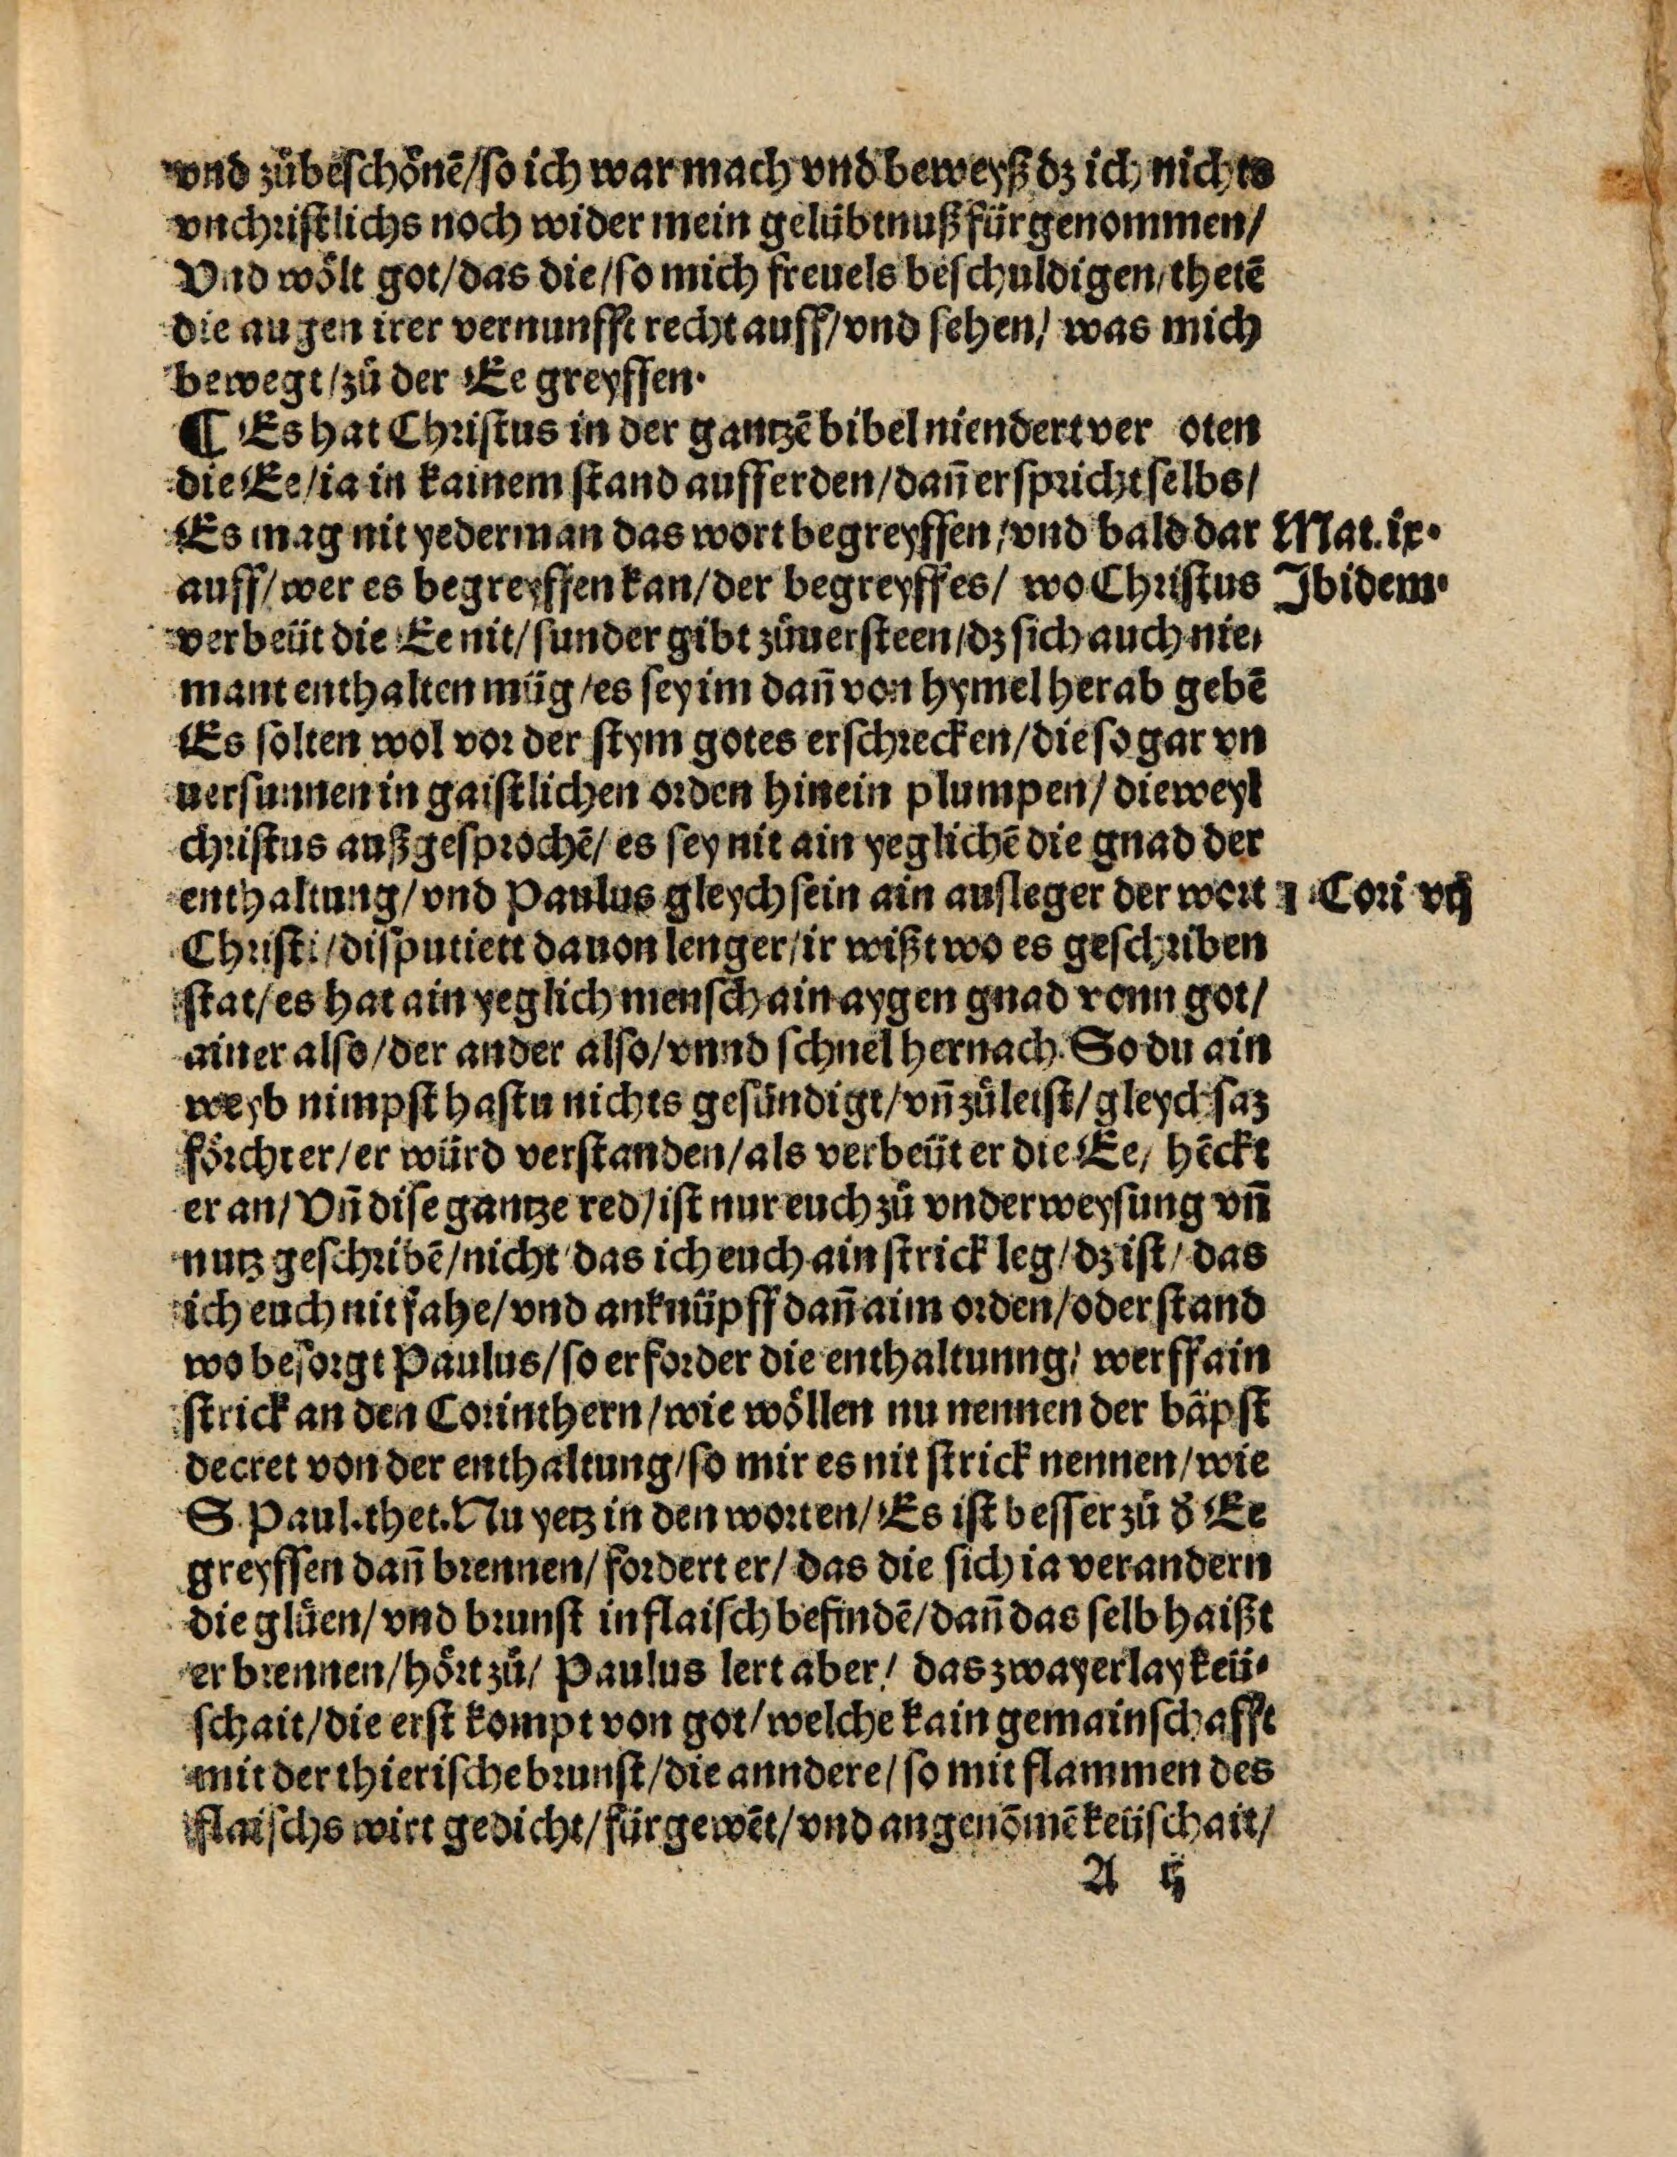 vnd zůbeschönē/so ich war mach vnd beweyß dz ich nichts
vnchristlichs noch wider mein gelübtnuß fürgenommen/
Vnd wölt got/das die/so mich freuels beschuldigen/thetē
die augen irer vernunfft recht auff/vnd sehen/ was mich
bewegt/zů der Ee greyffen.
¶ Es hat Christus in der gantzē bibel niendert ver oten
die Ee/ia in kainem stand auff erden/dañ er spricht selbs/
Es mag nit yederman das wort begreyffen/vnd bald dar Mat. ix.
auff/wer es begreyffen kan/der begreyff es/ wo Christus Ibidem.
verbeüt die Ee nit/sunder gibt zůuersteen/dz sich auch nie-
mant enthalten müg/es sey im dañ von hymel herab gebē
Es solten wol vor der stym gotes erschrecken/die so gar vn
uersunnen in gaistlichen orden hinein plumpen/dieweyl
christus außgesprochē/es sey nit ain yeglichē die gnad der
enthaltung/vnd Paulus gleych sein ain ausleger der wort 1 Cori vij
Christi/disputiett dauon lenger/ir wißt wo es geschriben
stat/es hat ain yeglich mensch ain aygen gnad vonn got/
ainer also/der ander also/vnnd schnel hernach. So du ain
weyb nimpst hastu nichts gesündigt/vñ zůletst/gleych saz
förcht er/er würd verstanden/als verbeüt er die Ee/ hēckt
er an/Vñ dise gantze red/ist nur euch zů vnderweysung vñ
nutz geschribē/nicht das ich euch ain strick leg/dz ist/das
ich euch nit fahe/vnd anknüpff dañ aim orden/oder stand
wo besorgt Paulus/so er forder die enthaltunng/ werff ain
strick an den Corinthern/wie wöllen nu nennen der bäpst
decret von der enthaltung/so mir es nit strick nennen/wie
S. Paul.thet.Nu yetz in den worten/Es ist besser zů ð Ee
greyffen dañ brennen/fordert er/das die sich ia verandern
die glüen/vnd brunst in flaisch befindē/dañ das selb haißt
er brennen/hört zů/ Paulus lert aber/ das zwayerlay keü-
schait/die erst kompt von got/welche kain gemainschafft
mit der thierische brunst/die anndere/so mit flammen des
flaischs wirt gedicht/fürgewēt/vnd angenōmē keüschait/
A ij